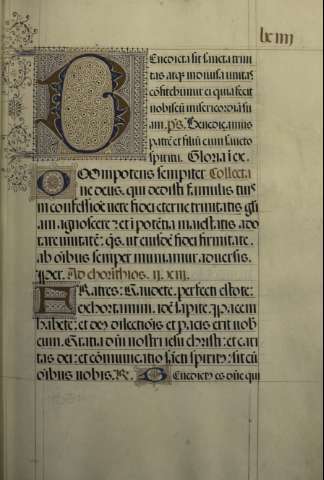 lxiiii
Benedicta sit sancta trini
tas atq; indiuisa unitas
cōfitebimur ei quia fecit
nobiscū misericordiā su
am. ps. Benedicamus
patrē et filiū cum sancto
spiritu. Gloria. ie.
OMnipotens sempiter Collecta
ne deus, qui dedisti famulis tuis
in confessiōe uere fidei eterne trinitatis glī
am agnoscere et ī potētia maiestatis ado
rare unitatē: qs. ut eiusdē fidei firmitate,
ab oībus semper muniamur aduersis.
per. Ad chorithios. ii. xiii.
FRatres: Gaudete, perfecti estote:
exhortamini. idē sapite. pacem
habete: et deus dilectiōis et pacis erit uob
cum. Gratia dnī nostri iesu christi: et cari
tas dei: et cōmunicatio sācti spiritus: sit cū
oībus uobis. R. Benedictus es dn̄e qui